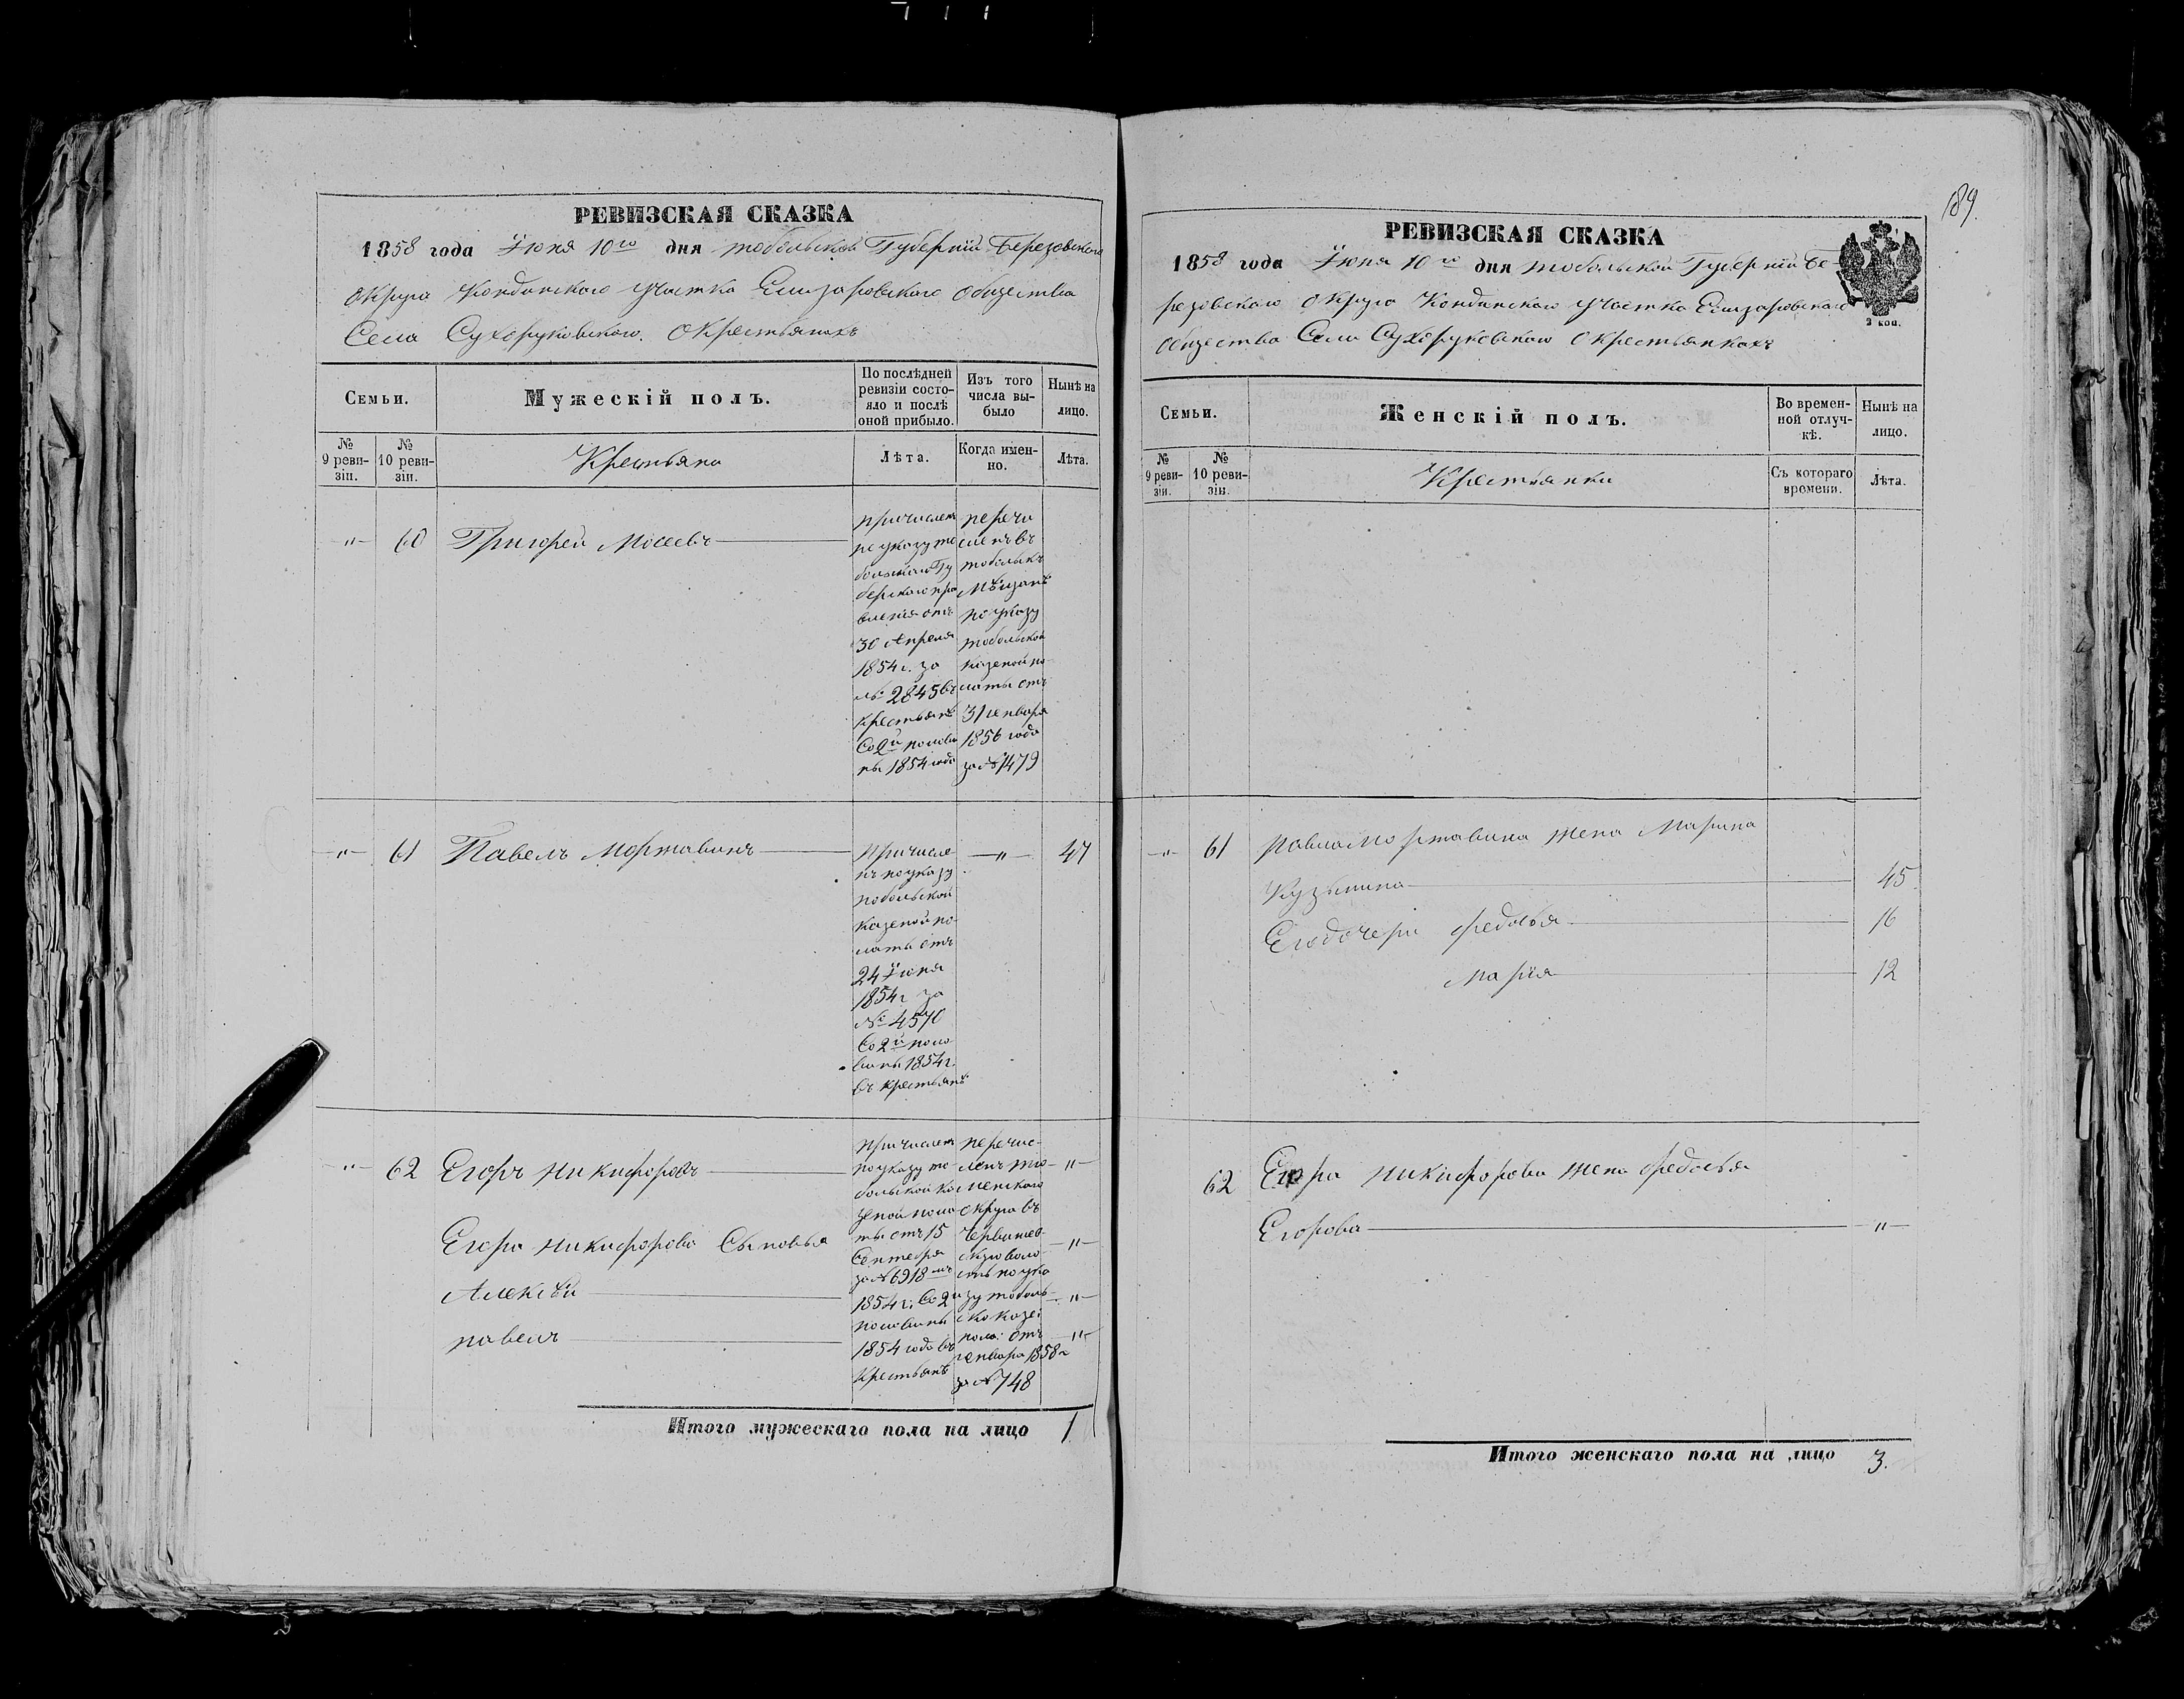 РЕВИЗСКАЯ СКАЗКА
1858 года Июня 10го дня тобольской Губерніи Березовскаго
округа Кондинскаго участка Елизаровскаго общества
Села Сухоруковскаго. О крестьянахъ
Семьи.
Мужескій полъ.
По послѣдней ревизіи состояло и послѣ оной прибыло.
Изъ того числа выбыло
Нынѣ на лицо.
№ 9 ревизіи.
№ 10 ревизіи.
Крестьяне
Лѣта.
Когда именно.
Лѣта.
-"- 60 Григорей Мосеевъ
причисленъ
по указу то
больскаго Гу
бернскаго пра
вленія отъ
30 Апреля
1854 г. за
№ 2845 въ
крестьянѣ
Со 2й полови
ны 1854 года
перечи
сленъ въ
тобольскъ
Мѣщанѣ
по указу
тобольской
казеной по
латы отъ
31 генваря
1856 года
за № 1479
-"- 61 Павелъ Моржавинъ
причисле
нъ по указу
тобольской
казеной по
латы отъ
24 Июня
1854 г за
№ 4570
Со 2й поло
вины 1854 г.
въ крестьянѣ
-"-
47
-"- 62 Егоръ Никифоровъ
Егора Никифорова Сыновья
Алексѣй
павелъ
причисленъ
по указу то
больской ка
зеной пола
ты отъ 15
Сентебря
за № 6918
1854 г. Со 2
половины
1854 года въ
крестьянѣ
перечис-
ленъ тю
менскаго
округа въ
Червишев-
скую воло
сть по ука
зу тоболь
ско казе:
пола: отъ
генваря 1858 г
за № 748
-"-
-"-
-"-
-"-
Итого мужескаго пола на лицо 1
189.
РЕВИЗСКАЯ СКАЗКА
2 коп.
1858 года Июня 10го дня тобольской Губерніи Бе-
резовскаго округа Кондинскаго участка Елизаровскаго
общества Села Сухоруковскаго О крестьянкахъ
Семьи.
Женскій полъ.
Во временной отлучкѣ.
Нынѣ на лицо.
№ 9 ревизіи.
№ 10 ревизіи.
Крестьянки
Съ котораго времени.
Лѣта.
-"- 61 павла Моржавина жена Марина
Кузьмина 45
Его дочери федосья 16
Марія 12
62 Егора Никифорова жена федосья
Егорова -"-
Итого женскаго пола на лицо 3.